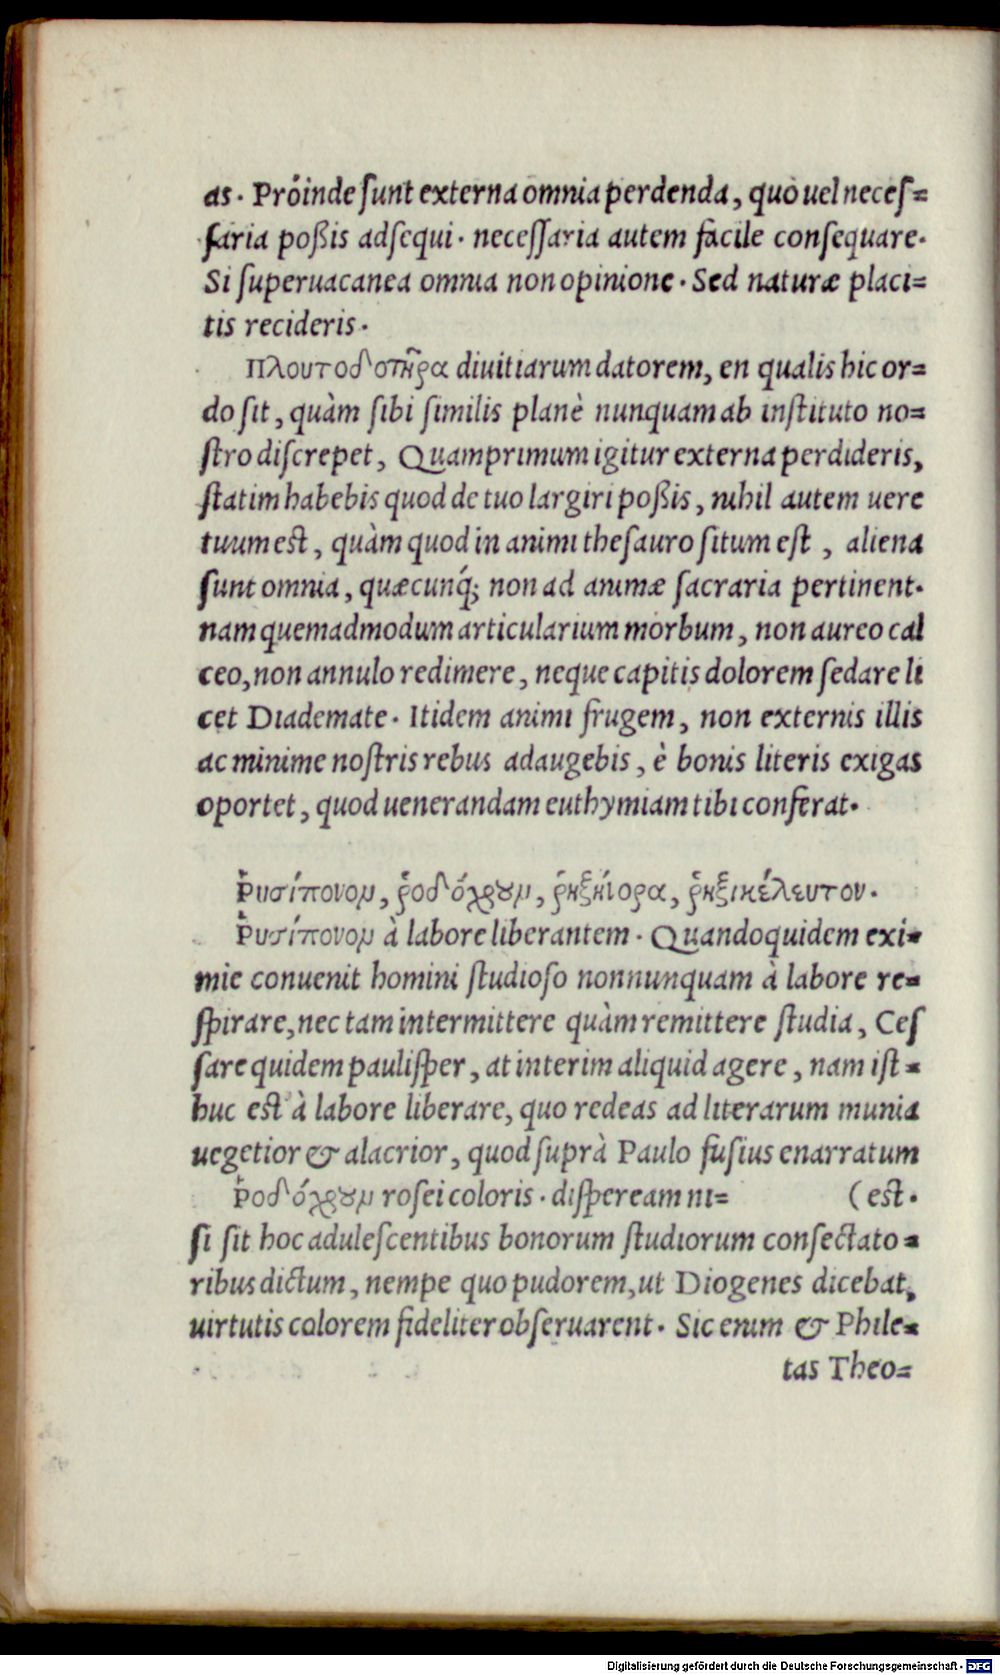 as. Proinde ſunt externa omnia perdenda, quo uel neceſ=
ſaria poßis adſequi. neceſſaria autem facile conſequare.
Si ſuperuacanea omnia non opinione. Sed naturæ placi=
tis recideris.
πλουτοδοτῆρα diuitiarum datorem, en qualis hic or=
do ſit, quàm ſibi ſimilis planè nunquam ab inſtituto no=
ſtro diſcrepet, Quamprimum igitur externa perdideris,
ſtatim habebis quod de tuo largiri poßis, nihil autem uere
tuum eſt, quàm quod in animi theſauro ſitum eſt , aliena
ſunt omnia, quæcunq́; non ad animæ ſacraria pertinent.
nam quemadmodum articularium morbum, non aureo cal
ceo, non annulo redimere, neque capitis dolorem ſedare li
cet Diademate. Itidem animi frugem, non externis illis
ac minime noſtris rebus adaugebis, è bonis literis exigas
oportet, quod uenerandam euthymiam tibi conferat.
ῥυσίπονον, ῥοδόχρουν, ῥηξήνορα, ῥηξικέλευτον.
ῥυσίπονον à labore liberantem. Quandoquidem exi=
mie conuenit homini ſtudioſo nonnunquam à labore re=
ſpirare, nec tam intermittere quàm remittere ſtudia, Ceſ
ſare quidem pauliſper, at interim aliquid agere, nam iſt=
huc eſt à labore liberare, quo redeas ad literarum munia
uegetior & alacrior, quod ſuprà Paulo fuſius enarratum
ῥοδόχρουν roſei coloris. diſpeream ni= (eſt.
ſi ſit hoc aduleſcentibus bonorum ſtudiorum conſectato=
ribus dictum, nempe quo pudorem, ut Diogenes dicebat,
uirtutis colorem fideliter obſeruarent. Sic enim & Phile=
tas Theo=
Digitalisierung gefördert durch die Deutsche Forschungsgemeinschaft - DFG